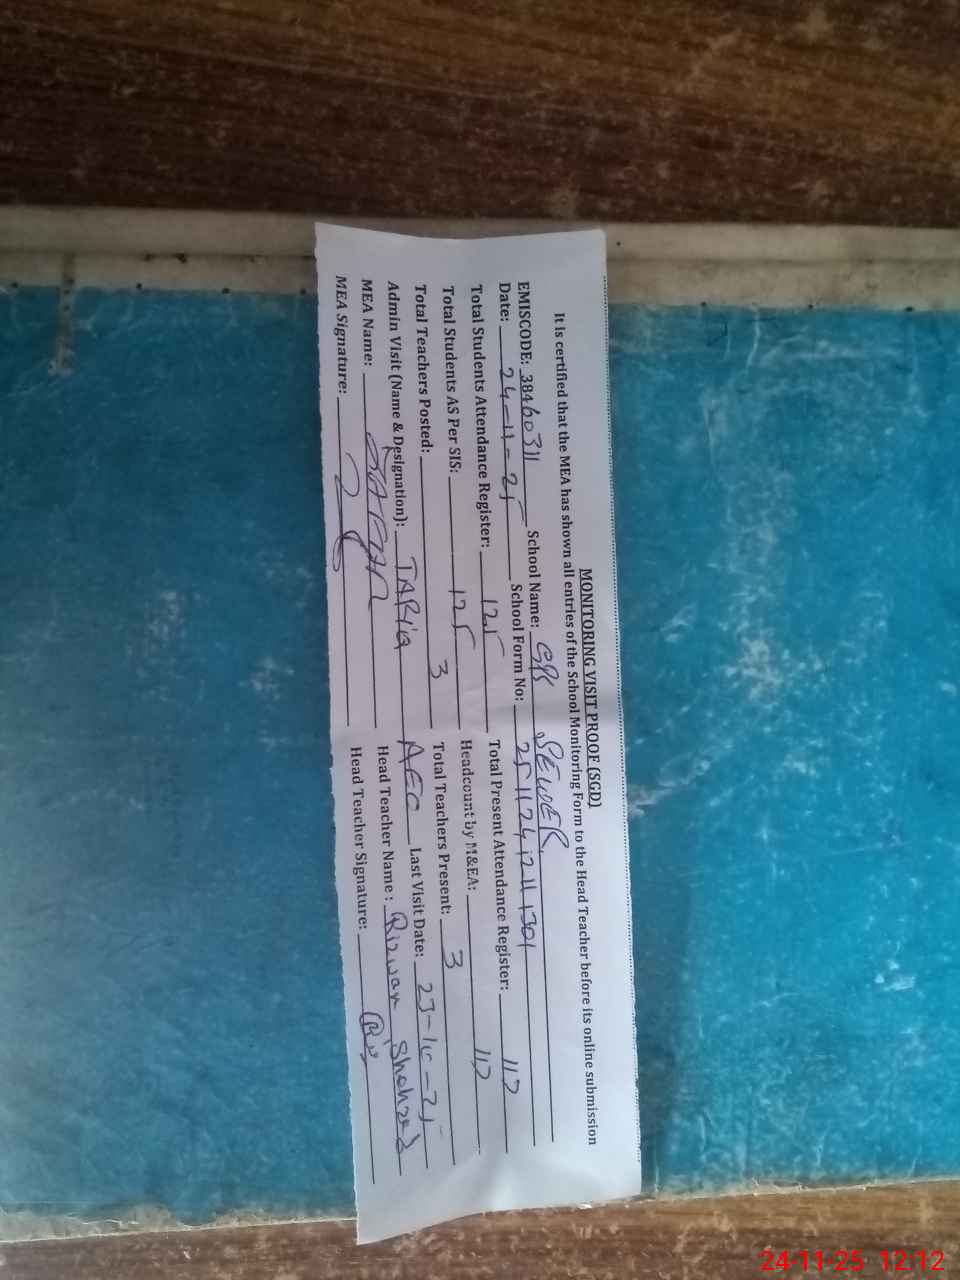 MONITORING VISIT PROOF (SGD)
It is certified that the MEA has shown all entries of the School Monitoring Form to the Head Teacher before its online submission
EMISCODE: 38460311 School Name: GPS SEWER
Date: 24-11-25 School Form No:
Total Students Attendance Register: 125 Total Present Attendance Register: 117
Total Students AS Per SIS: 125 Headcount by M&EA: 117
Total Teachers Posted: 3 Total Teachers Present: 3
Admin Visit (Name & Designation): TARiq AEO Last Visit Date: 23-10-25
MEA Name: Head Teacher Name : Rizwan Shahzad
MEA Signature: Head Teacher Signature:
24-11-25 12:12